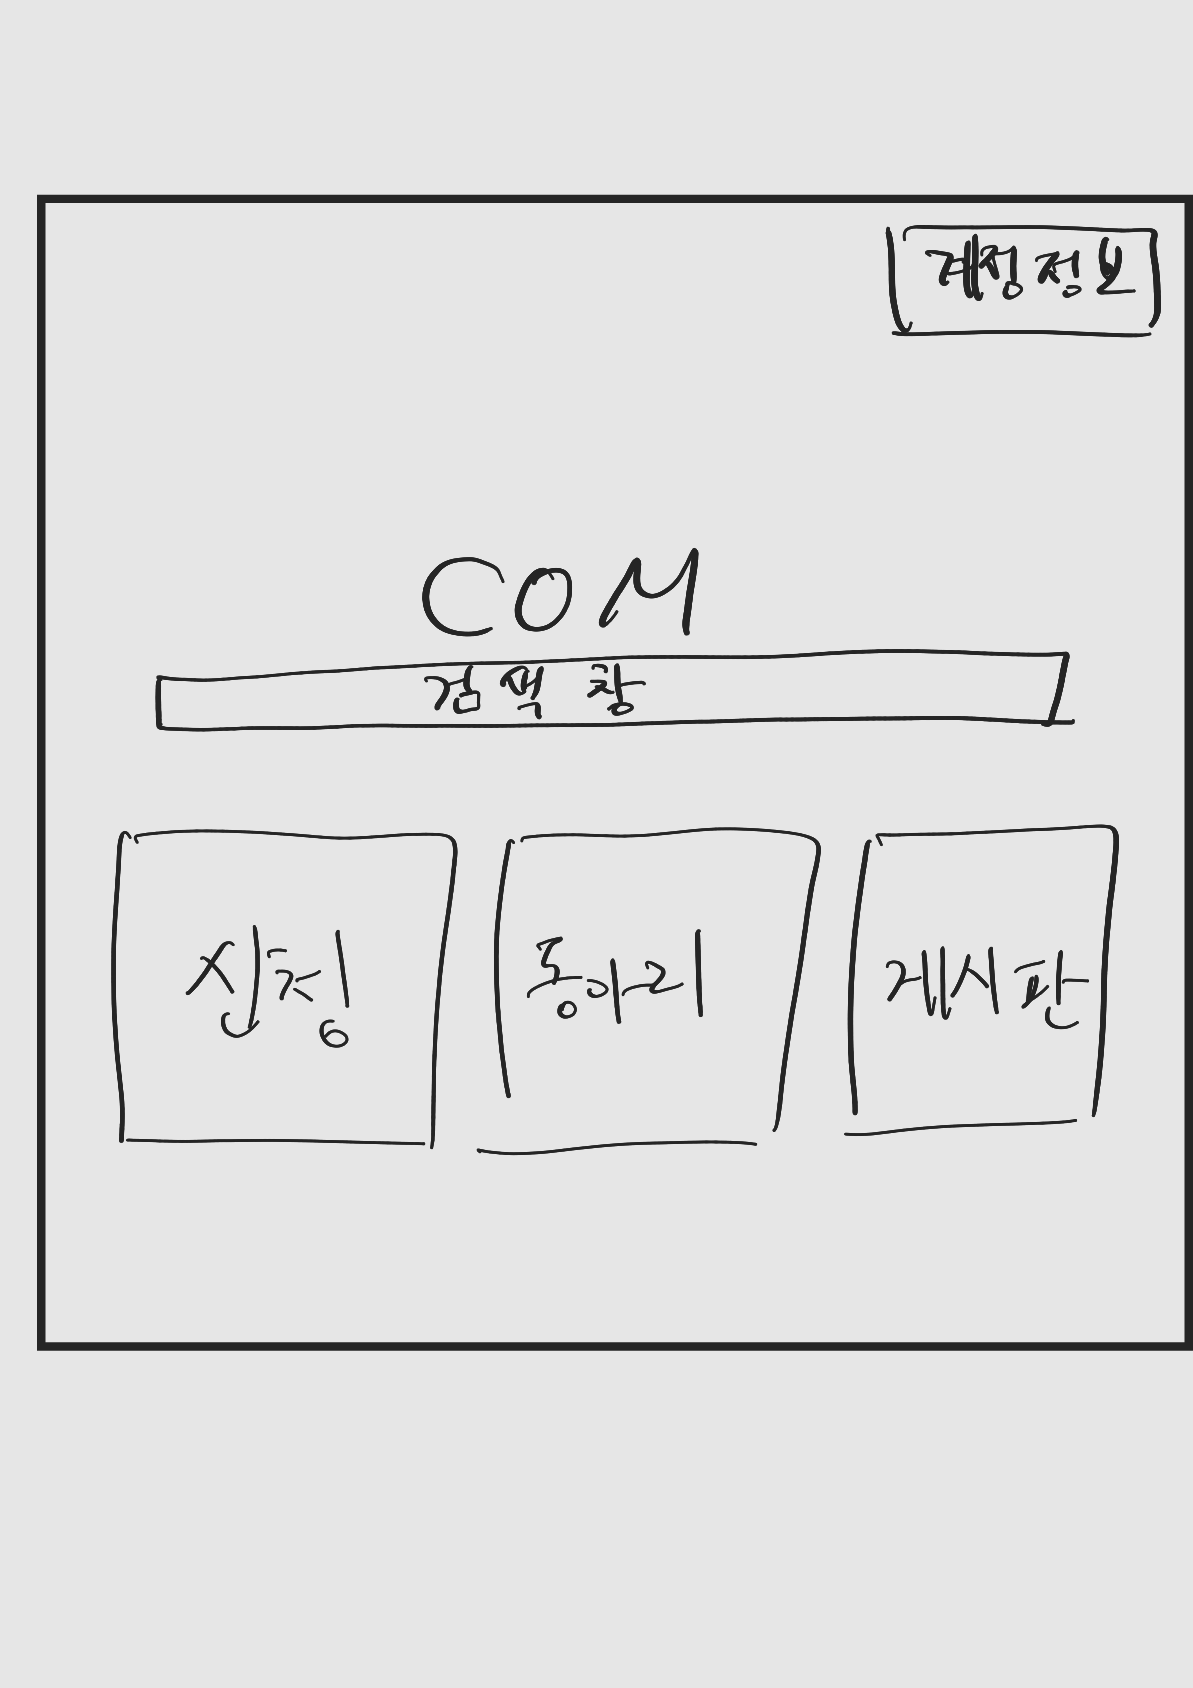 계정 정보
COM
검색 창
신청
동아리
게시판